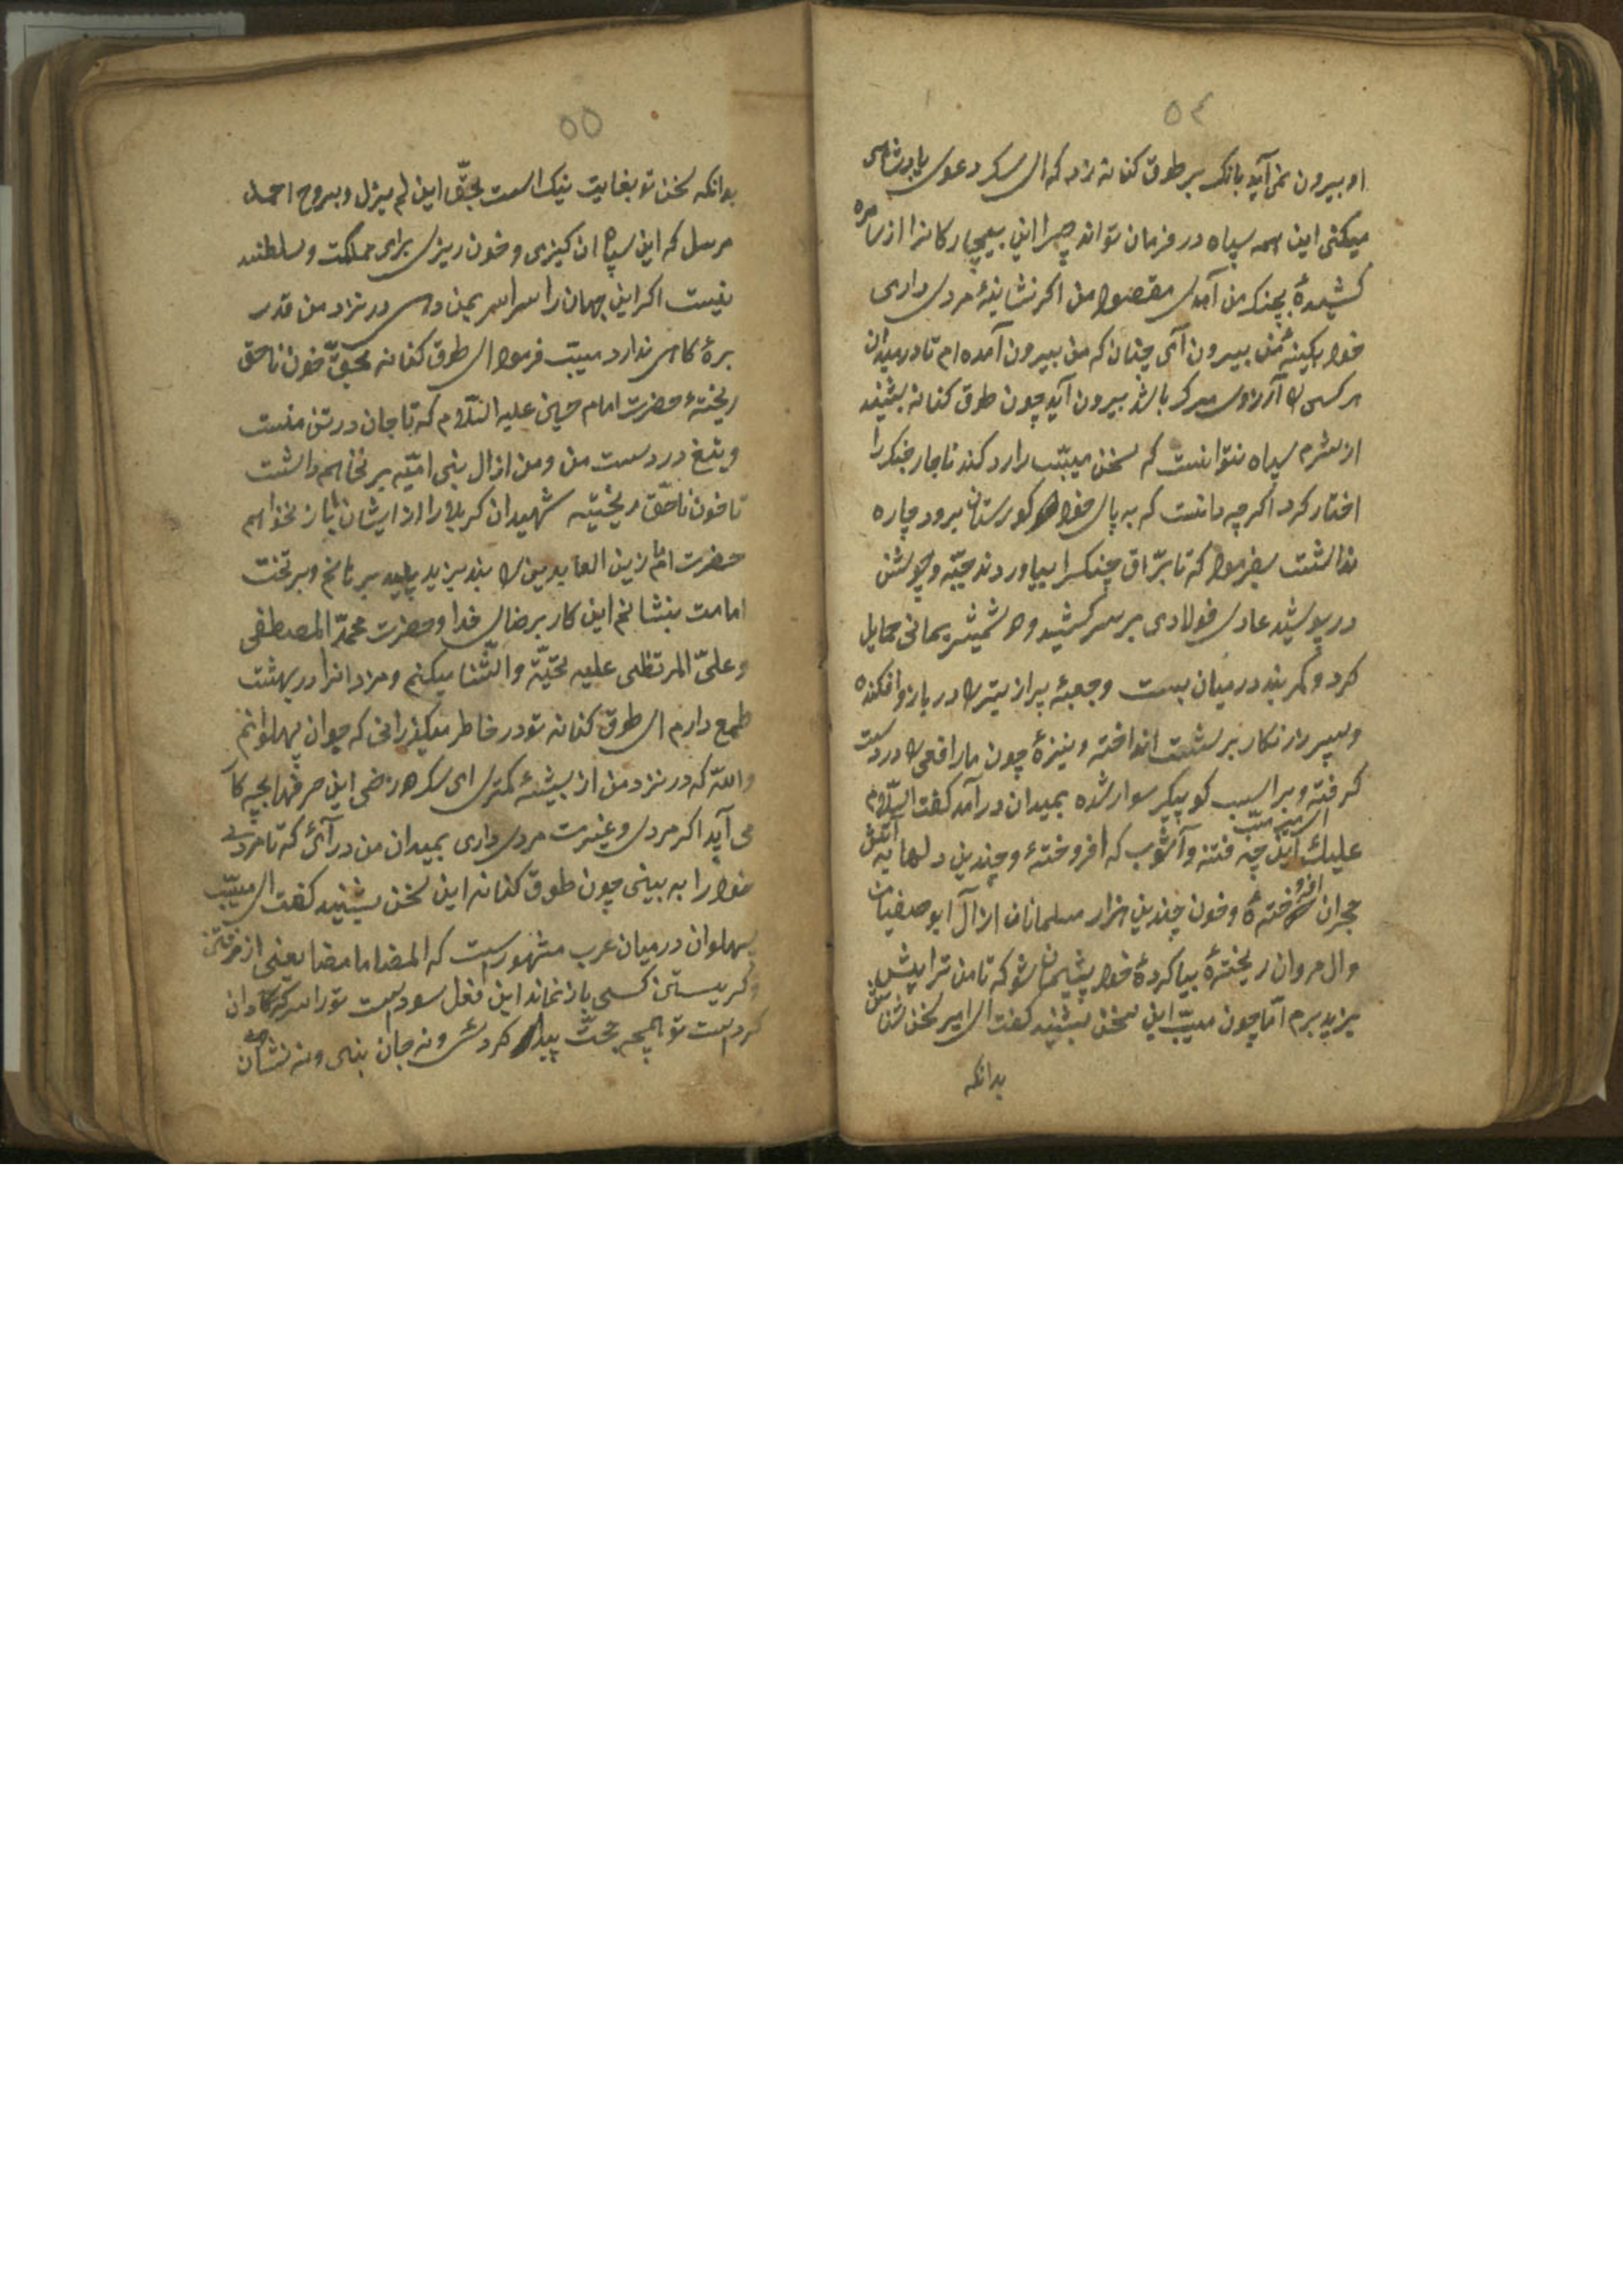 ٥٤
او بیرون نمی آید بانک بر طوق کنانه زد که ای سک دعوی پادشاهی
میکنی این همه سپاه در فرمان تواند چرا این بیچارکانرا از
کشیدهٔ بجنک من آمدی مقصود من اکر نشانهٔ مردی داری
خود بکینهٔ من بیرون آی چنان که من بیرون آمده ام تا در میدان
هر کسی را آرزوی مرک باشد بیرون آید چون طوق کنانه بشنید
از شرم سپاه نتوانست که سخن مسیّب را رد کند ناچار جنک را
اختیار کرد اکرچه دانست که به پای خود کورستان میرود چاره
نداشت بفرمود که تا یرّاق جنک را بیاوردند جبّه و جوشن
در پوشید عادی فولادی بر سر کشید و دو شمشیر یمانی حمایل
کرد و کمر بند در میان بست و جعبهٔ پر از تیر را در بازو افکنده
و سپر زرنکار بر پشت انداخته و نیزهٔ چون مار افعی را در دست
کرفته و بر اسب کوه پیکر سوار شده بمیدان در آمد کفت السّلام
علیک ای امیر مسیّب این چه فتنه و آشوب که افروختهٔ و چندین دلها به آتش
هجران افروختهٔ و خون چندین هزار مسلمانان از آل ابو صفیان
و ال مروان ریختهٔ بیا کردهٔ خود پشیمان شو که تا من ترا پیش
یزید برم امّا چون مسیّب این سخن بشنید کفت ای امیر سخن شناس
بدانکه
٥٥
بدانکه سخن تو بغایت نیک است بحقّ این لم یزل و بروح احمد
مرسل که این سپاه ان کیزی و خون ریزی برای مملکت و سلطنت
نیست اکر این جهان را سراسر بمن دهی در نزد من قدر
برهٔ کاهی ندارد مسیّب فرمود ای طوق کنانه بحقّ خون ناحق
ریختهٔ حضرت امام حسین علیه السّلام که تا جان در تن منست
و تیغ در دست من و من از ال بنی امیّه بر نخاهم داشت
تا خون ناحقّ ریختیه شهیدان کربلا را از ایشان باز نخواهم
حضرت امام زین العابدین را از بند یزید پلید برهانم و بر تخت
امامت بنشانم این کار برضای خدا و حضرت محمّد المصطفی
و علیّ المرتظی علیه تحیّته والثّنا میکنم و مزد انرا در بهشت
طمع دارم ای طوق کنانه تو در خاطر میکذرانی که جوان پهلوانم
والله که در نزد من از پیشهٔ کمتری ای سک هرزه این حرفها بچه کار
می آید اکر مردی و غیرت مردی داری بمیدان من در آئی که تا مردی
خود را به بینی چون طوق کنانه این سخن بشنید کفت ای مسیّب
پهلوان در میان عرب مشهور است که المضا ما مضا یعنی از رفتن
و کریستن کسی باز نماند این فعل سود است تو را سرکردان
کرد است تو هیچ بحث پیدا کردی و نه جان بینی و نه نشان